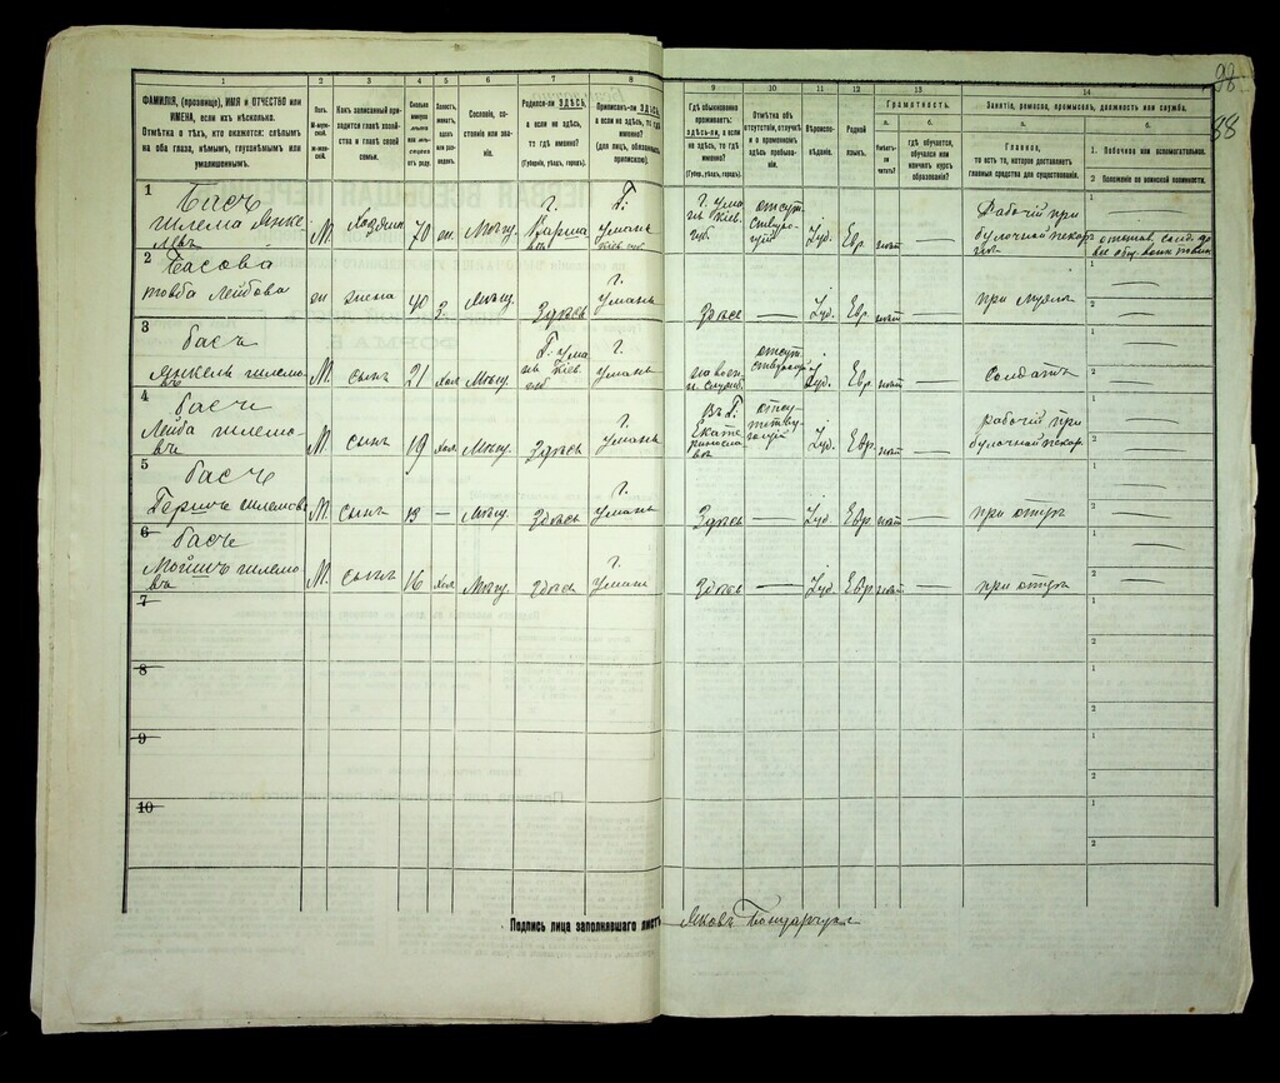 98
88
1
2
3
4
5
6
7
8
9
10
11
12
13
14
ФАМИЛІЯ, (прозвище), ИМЯ и ОТЧЕСТВО или
ИМЕНА, если ихъ нѣсколько.
Отмѣтка о тѣхъ, кто окажется: слѣпымъ
на оба глаза, нѣмымъ, глухонѣмымъ или
умалишеннымъ.
Полъ.
М-мужской.
Ж-женскій.
Какъ записанный приходится главѣ хозяйства и главѣ своей
семьи.
Сколько
минуло
лѣтъ
или мѣсяцевъ
отъ роду.
Холостъ,
женатъ,
вдовъ
или разведенъ.
Сословіе, состояніе или званіе.
Родился-ли ЗДѢСЬ,
а если не здѣсь,
то гдѣ именно?
(Губернія, уѣздъ, городъ).
Приписанъ-ли ЗДѢСЬ,
а если не здѣсь, то гдѣ
именно?
(для лицъ, обязанныхъ
припиской).
Гдѣ обыкновенно
проживаетъ:
здѣсь-ли, а если
не здѣсь, то гдѣ
именно?
(Губер., уѣздъ, городъ).
Отмѣтка объ
отсутствіи, отлучкѣ
и о временномъ
здѣсь пребываніи.
Вѣроисповѣданіе.
Родной
языкъ.
Грамотность.
а.
Умѣетъ-ли
читать?
б.
гдѣ обучается,
обучался или
кончилъ курсъ
образованія?
Занятіе, ремесло, промыселъ, должность или служба.
а.
Главное,
то есть то, которое доставляетъ
главныя средства для существованія.
б.
1. Побочное или вспомогательное.
2 Положеніе по воинской повинности.
1
Басъ
Шлема Янкелевъ
М. Хозяинъ 70 Мѣщ.
г. Варшава
Г. Умань
Кіев. губ.
г. Умань Кіев. губ.
отсутствующій
Іуд. Евр. нѣтъ —
Рабочій при
булочной пекар
2
Басова
Товба Лейбова
жена 40 Мѣщ. Здѣсь
г. Умань
Здѣсь — Іуд. Евр. нѣтъ —
при мужѣ
3
басъ
Янкель Шлемовъ
М. сынъ 21 хол. Мѣщ.
Г. Умань Кіев. губ.
г. Умань
на воен. служб.
отсутствующій
Іуд. Евр. нѣтъ —
Солдатъ
4
басъ
Лейба Шлемовъ
М. сынъ 19 хол. Мѣщ. Здѣсь
г. Умань
Въ Г. Екатеринослав
отсутствующій
Іуд. Евр. нѣтъ —
рабочій при
булочной пекар.
5
басъ
Гершъ Шлемовъ
М. сынъ 13 — Мѣщ. Здѣсь
г. Умань
Здѣсь — Іуд. Евр. нѣтъ —
при отцѣ
6
басъ
Мойшъ Шлемовъ
М. сынъ 16 хол. Мѣщ. Здѣсь
г. Умань
Здѣсь — Іуд. Евр. нѣтъ —
при отцѣ
7
8
9
10
Подпись лица заполнявшаго листъ Яковъ Бондарчукъ